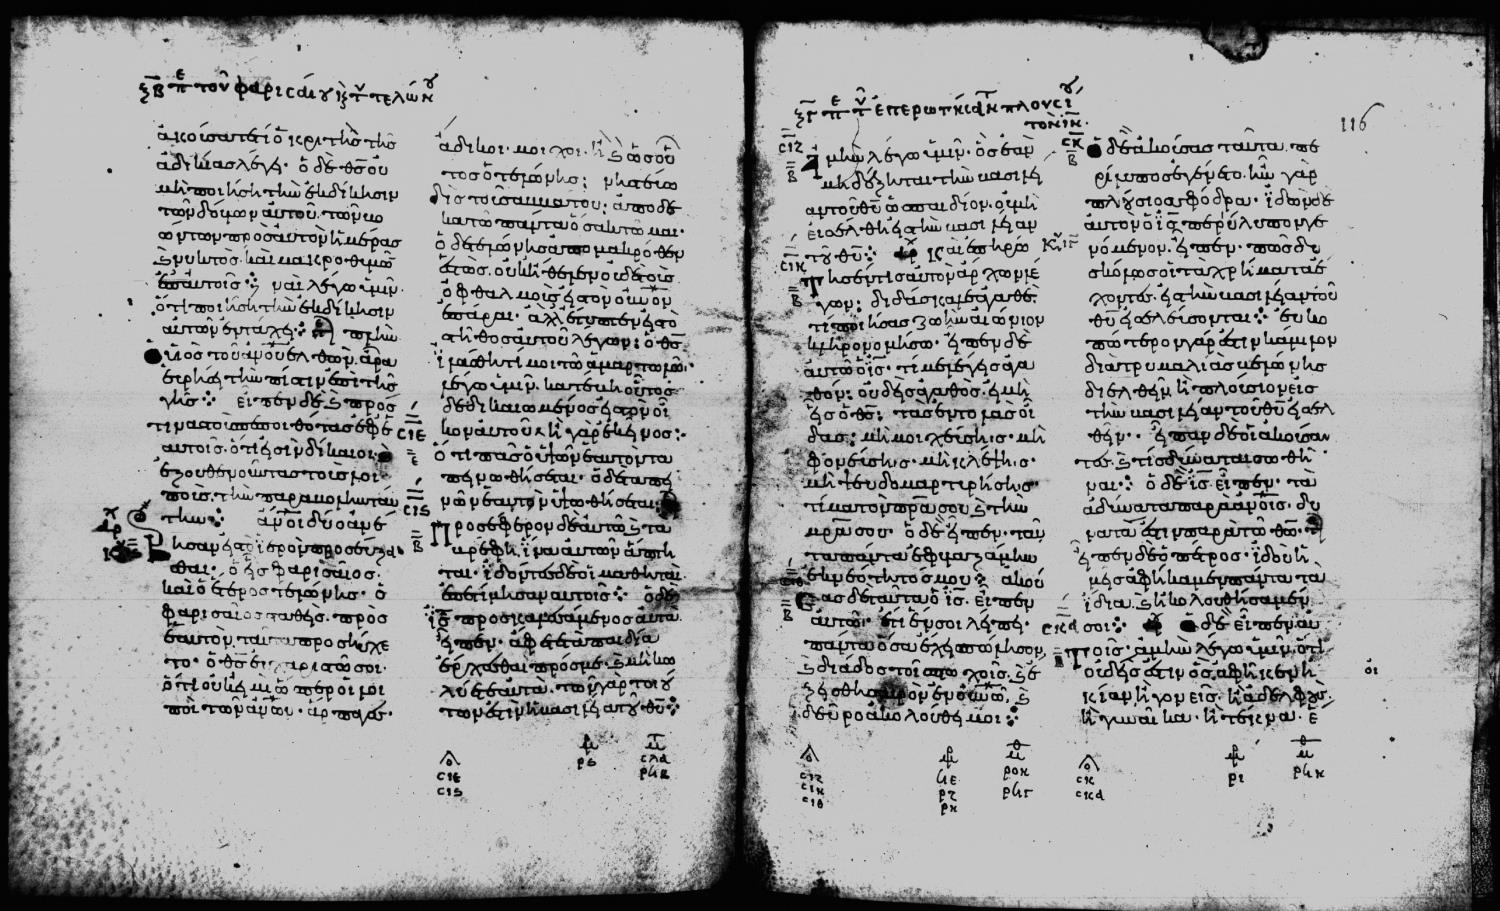 ξβ πε τοῦ φαρισαίου καὶ τοῦ τελώνου
ἀκούσατε τί ὁ κριτὴς τῆς
ἀδικίας λέγει· ὁ δὲ θς οὐ
μὴ ποιήση τὴν ἐκδίκησιν
τῶν δούλων αὐτοῦ. τῶν βο
ώντων πρὸς αὐτὸν ἡμέρας
καὶ νυκτὸς. καὶ μακροθυμῶ
ἐπ αὐτοῖς· ναὶ λέγω ὑμῖν.
ὅτι ποιήση τὴν ἐκδίκησιν
αὐτῶν ἐν τάχει· πλὴν
ὁ υἱὸς τοῦ ἀνου ἐλθὼν. ἆρα
εὑρήσει τὴν πίστιν ἐπὶ τῆς
γῆς· εἶπεν δὲ καὶ πρός
τινας τοὺς πεποιθότας ἐφ ἑ
αυτοῖς. ὅτι εἰσὶν δίκαιοι.
ἐξουθενοῦντας τοὺς λοι
ποὺς. τὴν παραβολὴν ταύ
την· ἄνοι δύο ἀνέ
βησαν εἰς τὸ ἱερὸν προσεύξα
σθαι. ὁ εἷς φαρισαῖος.
καὶ ὁ ἕτερος τελώνης. ὁ
φαρισαῖος σταθεὶς. πρὸς
ἑαυτὸν ταῦτα προσηύχε
το. ὁ θς εὐχαριστῶ σοι.
ὅτι οὐκ εἰμὶ ὥσπερ οἱ λοι
ποὶ τῶν ἀνων. ἅρπαγες.
ἄδικοι. μοιχοὶ. ἢ καὶ ὡς οὗ
τος ὁ τελώνης· νηστεύω
δὶς τοῦ σαββάτου· ἀποδε
κατῶ πάντα ὅσα κτῶμαι.
ὁ δὲ τελώνης ἀπὸ μακρόθεν
ἑστὼς. οὐκ ἤθελεν οὐδὲ τοὺς
ὀφθαλμοὺς εἰς τὸν οὐνὸν
ἐπᾶραι. ἀλλ ἔτυπτεν εἰς τὸ
στῆθος αὐτοῦ λέγων· ὁ θς
ἱλάσθητί μοι τῶ ἁμαρτωλῶ.
λέγω ὑμῖν. κατέβη οὗτος
δεδικαιωμένος εἰς τὸν οἶ
κον αὐτοῦ ἢ γὰρ ἐκεῖνος·
ὅτι πᾶς ὁ ὑψῶν ἑαυτὸν τα
πεινωθήσεται. ὁ δὲ ταπει
νῶν ἑαυτὸν ὑψωθήσεται·
Προσέφερον δὲ αὐτῶ καὶ τὰ
βρέφη. ἵνα αὐτῶν ἅπτη
ται. ἰδόντες δὲ οἱ μαθηταὶ
ἐπετίμησαν αὐτοῖς· ὁ δὲ
ις προσκαλεσάμενος αὐτὰ
εἶπεν. ἄφετε τὰ παιδία
ἔρχεσθαι πρός με. καὶ μὴ κω
λύετε αὐτὰ. τῶν γὰρ τοιού
των ἐστὶν ἡ βασιλεία τοῦ θυ·
σιε
σις
σλα
ρπβ
ξγ πε τοῦ ἐπερωτήσαντος πλουσίου
τὸν ιν
116
Ἀμὴν λέγω ὑμῖν. ὃς ἐὰν
μὴ δέξηται τὴν βασιλεί
αν τοῦ θυ ὡς παιδίον. οὐ μὴ
εἰσέλθη εἰς τὴν βασιλείαν
τοῦ θυ· καὶ ἐπηρώ
τησέν τις αὐτὸν ἄρχων λέ
γων· διδάσκαλε ἀγαθὲ.
τί ποιήσας ζωὴν αἰώνιον
κληρονομήσω. εἶπεν δὲ
αὐτῶ ὁ ις. τί με λέγεις ἀγα
θόν; οὐδεὶς ἀγαθὸς. εἰ μὴ
εἷς ὁ θς· τὰς ἐντολὰς οἶ
δας· μὴ μοιχεύσης. μὴ
φονεύσης. μὴ κλέψης.
μὴ ψευδομαρτυρήσης.
τίμα τὸν πρα σου καὶ τὴν
μρα σου. ὁ δὲ εἶπεν. ταῦ
τα πάντα ἐφυλαξάμην
ἐκ νεότητός μου· ἀκού
σας δὲ ταῦτα ὁ ις. εἶπεν
αὐτῶ. ἔτι ἕν σοι λείπει.
πάντα ὅσα ἔχεις πώλησον,
καὶ διάδος τοῖς πτωχοῖς. καὶ ἕ
ξεις θησαυρὸν ἐν οὐνῶ. καὶ
δεῦρο ἀκολούθει μοι·
ὁ δὲ ἀκούσας ταῦτα. πε
ρίλυπος ἐγένετο. ἦν γὰρ
πλούσιος σφόδρα. ἰδὼν δὲ
αὐτὸν ὁ ις περίλυπον γε
νόμενον. εἶπεν. πῶς δυ
σκόλως οἱ τὰ χρήματα ἔ
χοντες. εἰς τὴν βασιλείαν τοῦ
θυ εἰσελεύσονται· εὐκο
πώτερον γάρ ἐστιν κάμιλον
διὰ τρυμαλιᾶς βελώνης
διελθεῖν ἢ πλούσιον εἰς
τὴν βασιλείαν τοῦ θυ εἰσελ
θεῖν· εἶπαν δὲ οἱ ἀκούσαν
τες. καὶ τίς δύναται σωθῆ
ναι· ὁ δὲ ις εἶπεν. τὰ
ἀδύνατα παρὰ ἀνοις. δυ
νατά ἐστιν παρὰ τῶ θω.
εἶπεν δὲ ὁ πέτρος. ἰδοὺ ἡ
μεῖς ἀφήκαμεν πάντα τὰ
ἴδια. καὶ ἠκολουθήσαμέν
σοι· ὁ δὲ εἶπεν αὐ
τοῖς. ἀμὴν λέγω ὑμῖν. ὅτι
οὐδείς ἐστιν ὃς ἀφῆκεν οἰ
κίαν ἢ γονεῖς. ἢ ἀδελφοὺς.
ἢ γυναῖκα. ἢ τέκνα. ἕ
σιζ
σιη
σκ
σκα